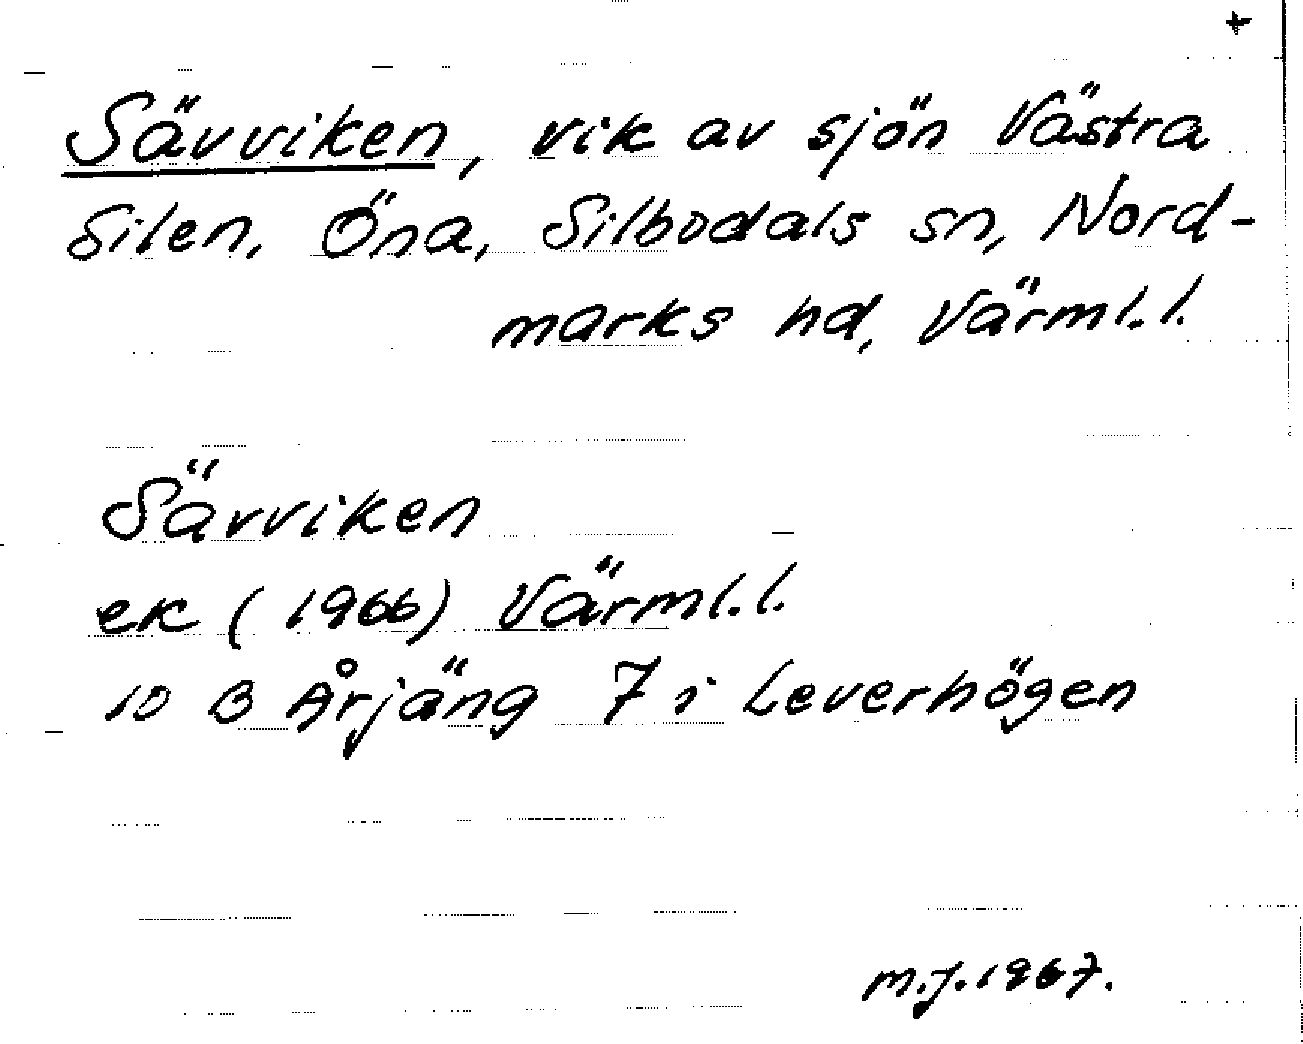 +
Sävviken, vik av sjön Västra
Silen, Öna, Silbodals sn, Nord-
marks hd, Värml.l.
Sävviken
ek (1966) Värml.l.
10 B Årjäng 7 i Leverhögen
M.J. 1967.